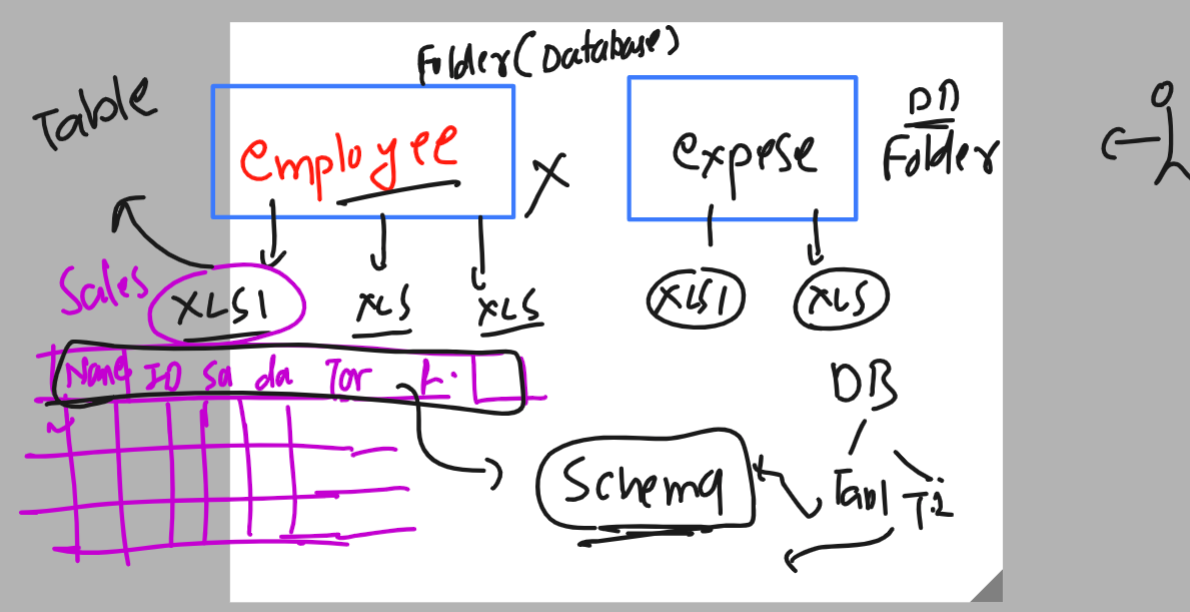 Folder (Database)
Table
employee
X
expese
DB
Folder
Sales
XLS1
XLS
XLS
XLS1
XLS
Name ID Sa da Tor
DB
Schema
Tabl T.2